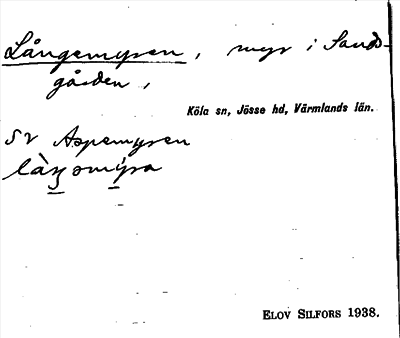 Långemyren, myr i Sand-
gården,
Köla sn, Jösse hd, Värmlands län.
SV Aspemyren
làŋəmýra
ELOV SILFORS 1938.